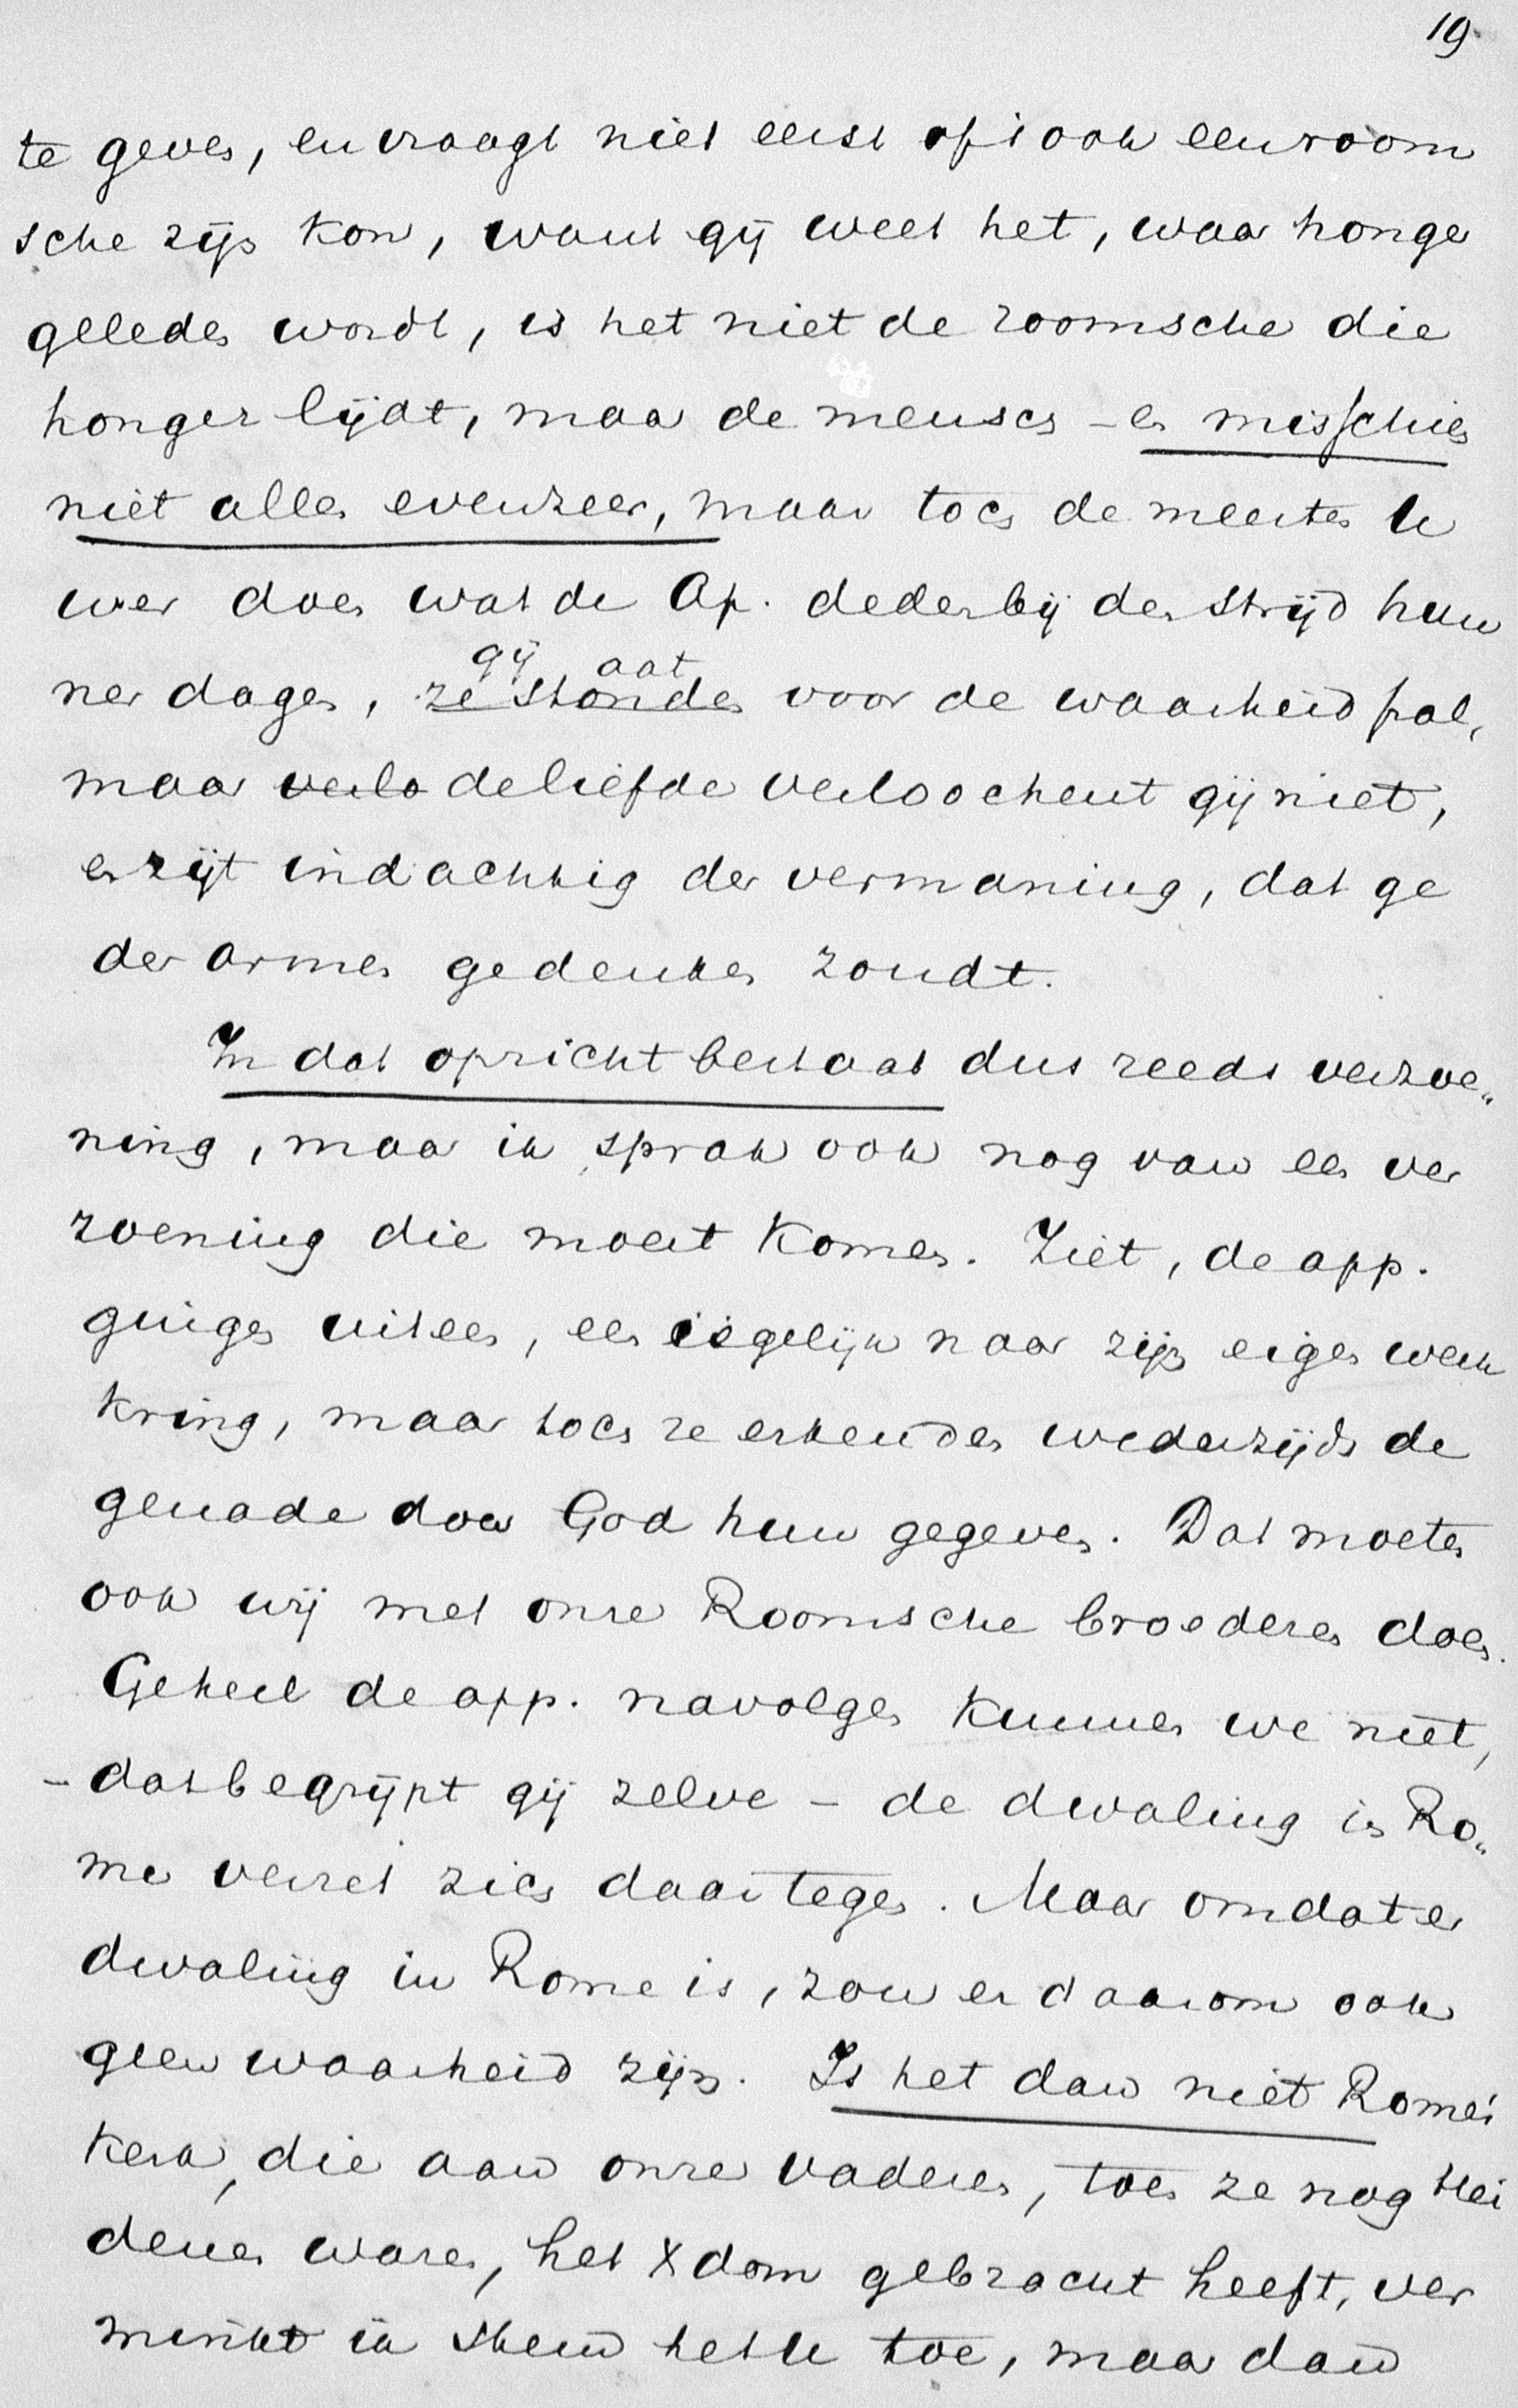 19.
te geven, en vraagt niet eerst of 't ook een room
sche zijn kon, want gij weet het, waar honger
geleden wordt, is het niet de roomsche die
honger lijdt, maar de mensch – en misschien
niet allen evenzeer, maar toch de meesten U
wer doen wat de Ap. deden bij den strijd hun
ner dagen, ze stonden voor de waarheid pal,
gij aat
maar verlo de liefde verloochent gij niet,
en zijt indachtig der vermaning, dat ge
der armen gedenken zoudt.
In dat opzicht bestaat dus reeds verzoe„
ning, maar ik sprak ook nog van een ver
zoening die moest komen. Ziet, de app.
gingen uiteen, een iegelijk naar zijn eigen werk
kring, maar toch ze erkenden wederzijds de
genade door God hun gegeven. Dat moeten
ook wij met onze Roomsche broederen doen.
Geheel de app. navolgen kunnen we niet,
– dat begrijpt gij zelve – de dwaling in Ro„
me verzet zich daartegen. Maar omdat er
dwaling in Rome is, zou er daarom ook
geen waarheid zijn. Is het dan niet Rome's
kerk, die aan onze vaderen, toen ze nog Hei
denen waren, het Xdom gebracht heeft, ver
minkt ik stem het U toe, maar dan